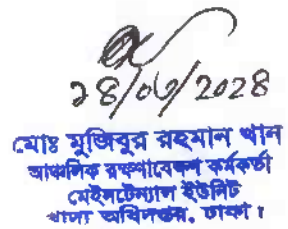 ১৪/০৩/২০২৪
মোঃ মুজিবুর রহমান খান
আঞ্চলিক রক্ষণাবেক্ষণ কর্মকর্তা
মেইনটেন্যান্স ইউনিট
খাদ্য অধিদপ্তর, ঢাকা।